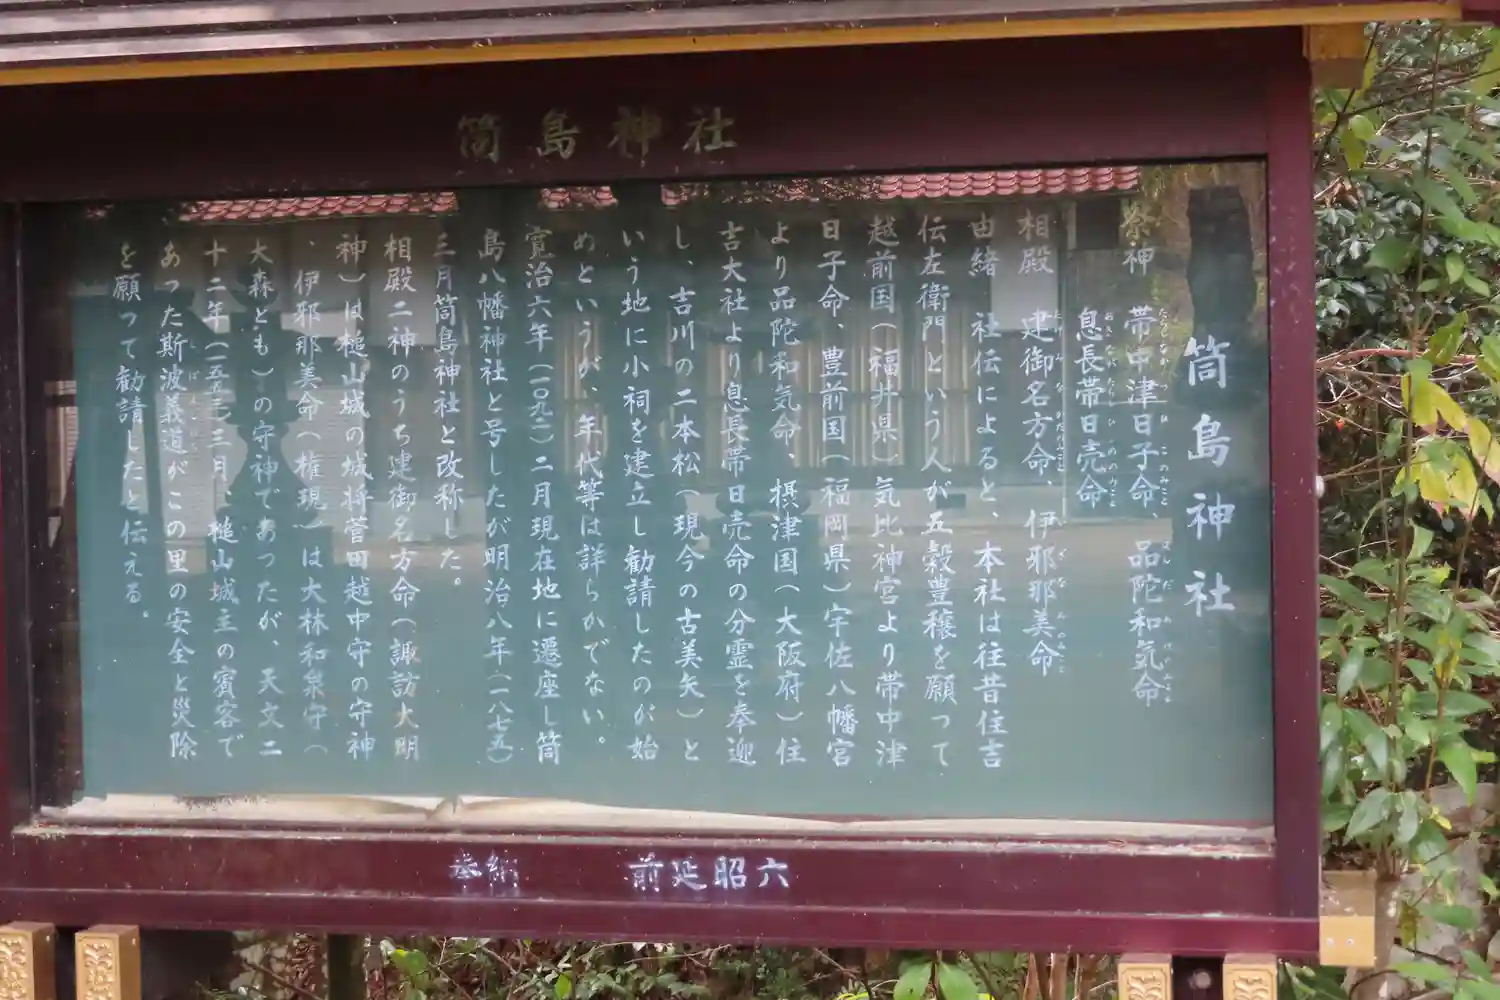 筒島神社
筒島神社
祭神 帯中津日子命、品陀和気命
息長帯日売命
相殿 建御名方命、伊邪那美命
由緒 社伝によると、本社は往昔住吉
伝左衛門という人が五穀豊穣を願って
越前国(福井県)気比神宮より帯中津
日子命、豊前国(福岡県)宇佐八幡宮
より品陀和気命、摂津国(大阪府)住
吉大社より息長帯日売命の分霊を奉迎
し、吉川の二本松(現今の古美矢)と
いう地に小祠を建立し勧請したのが始
めというが、年代等は詳らかでない。
寛治六年(一〇九二)二月現在地に遷座し筒
島八幡神社と号したが明治八年(一八七五)
三月筒島神社と改称した。
相殿二神のうち建御名方命(諏訪大明
神)は槌山城の城将菅田越中守の守神
、伊邪那美命(権現)は大林和泉守(
大森とも)の守神であったが、天文二
十二年(一五五三)三月、槌山城主の賓客で
あった斯波義道がこの里の安全と災除
を願って勧請したと伝える。
奉納 前延昭六